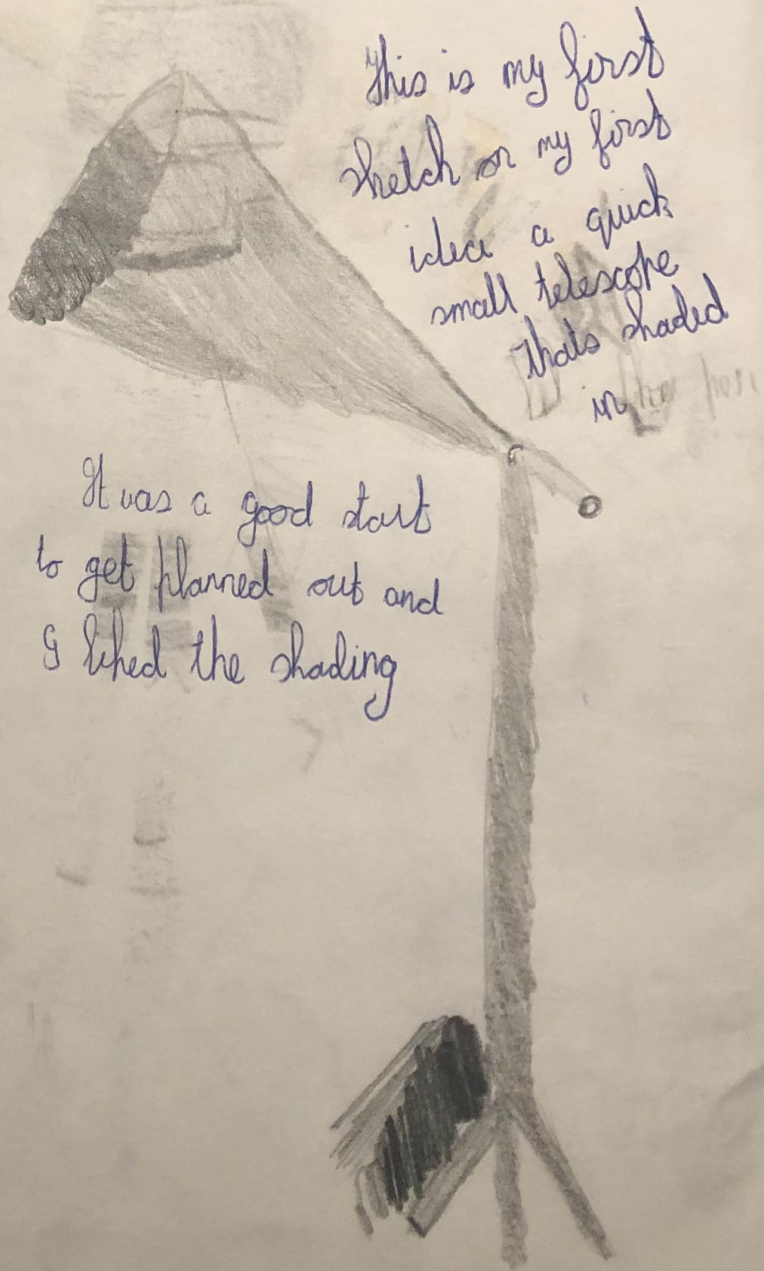 This is my first
sketch on my first
idea a quick
small telescope
thats shaded
in
It was a good start
to get planned out and
I liked the shading